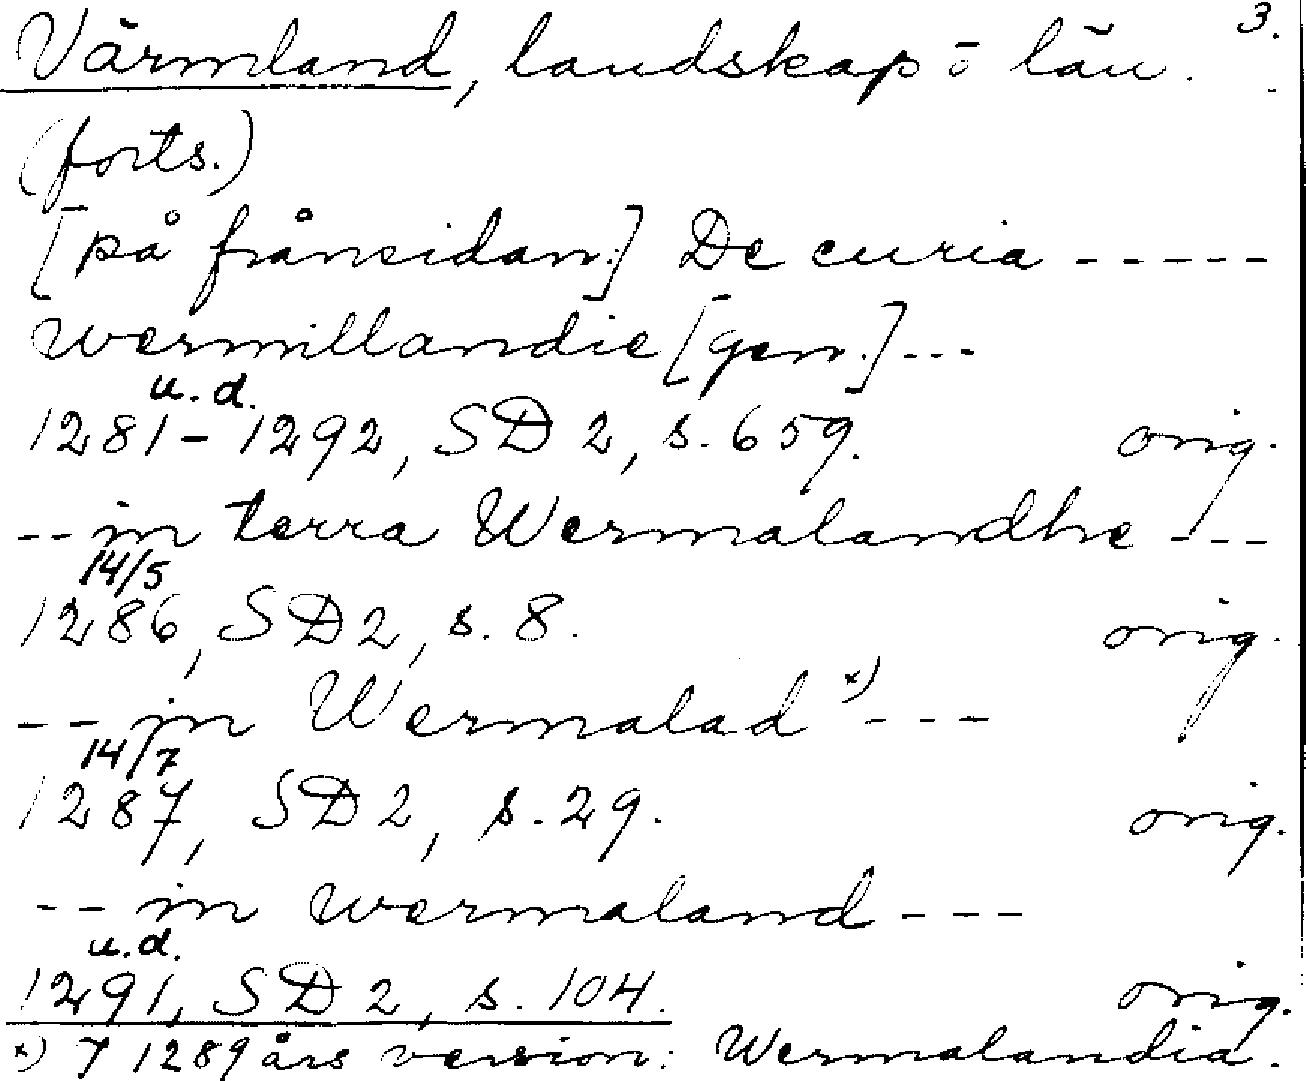 3.
Värmland, landskap o län.
(forts.)
[på frånsidan:] De curia -----
wermillandie [gen.] ---
u.d.
1281-1292, SD 2, s. 659. orig.
-- in terra Wermalandhe ---
14/5
1286, SD 2, s. 8. orig.
-- in Wermalad x) ---
14/7
1287, SD 2, s. 29. orig.
-- in wermaland ---
u.d.
1291, SD 2, s. 104. orig.
x) I 1289 års version: Wermalandia.